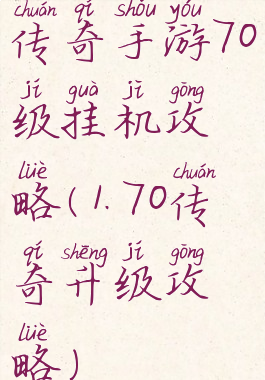 chuán qí shǒu yóu
传奇手游70
jí guà jī gōng
级挂机攻
lüè chuán
略(1.70传
qí shēng jí gōng
奇升级攻
lüè
略)